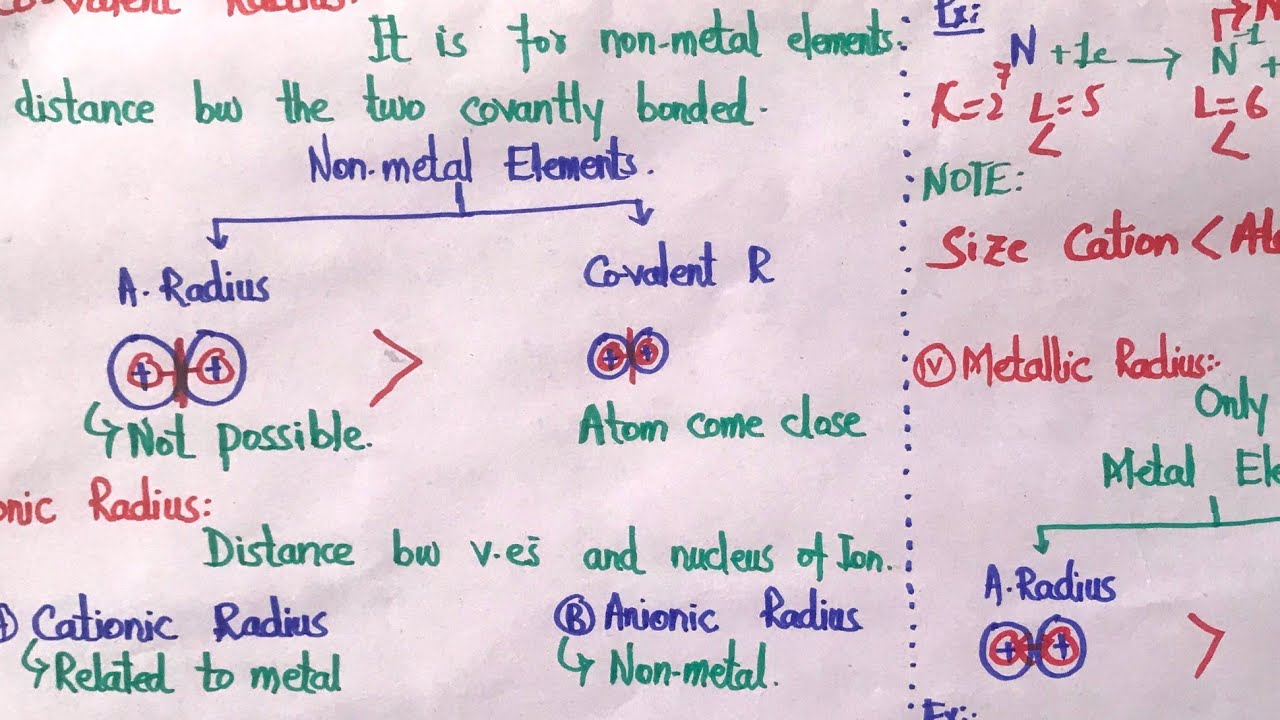 Co-valent Radius:
It is for non-metal elements.
distance bw the two covantly bonded.
Non-metal Elements.
A. Radius
Co-valent R
+ +
>
+ +
Not possible.
Atom come close
onic Radius:
Distance bw v.es and nucleus of Ion.
Cationic Radius
Related to metal
(B) Anionic Radius
Non-metal.
Ex:
N + 1e → N⁻¹ +
7
K=2 L=5
L=6
<
<
NOTE:
Size Cation < Ato
(IV) Metallic Radius:-
Only
Metal Ele
A. Radius
+ +
>
Ex:-